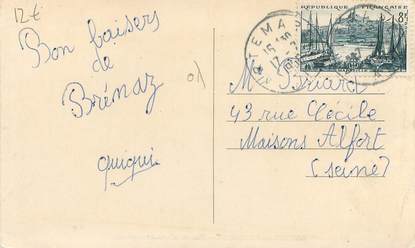 12€
Bon baisers
de
Brénaz
quiqui
REPUBLIQUE FRANÇAISE
8F
M Briard
43 rue Cécile
Maisons Alfort
(seine)